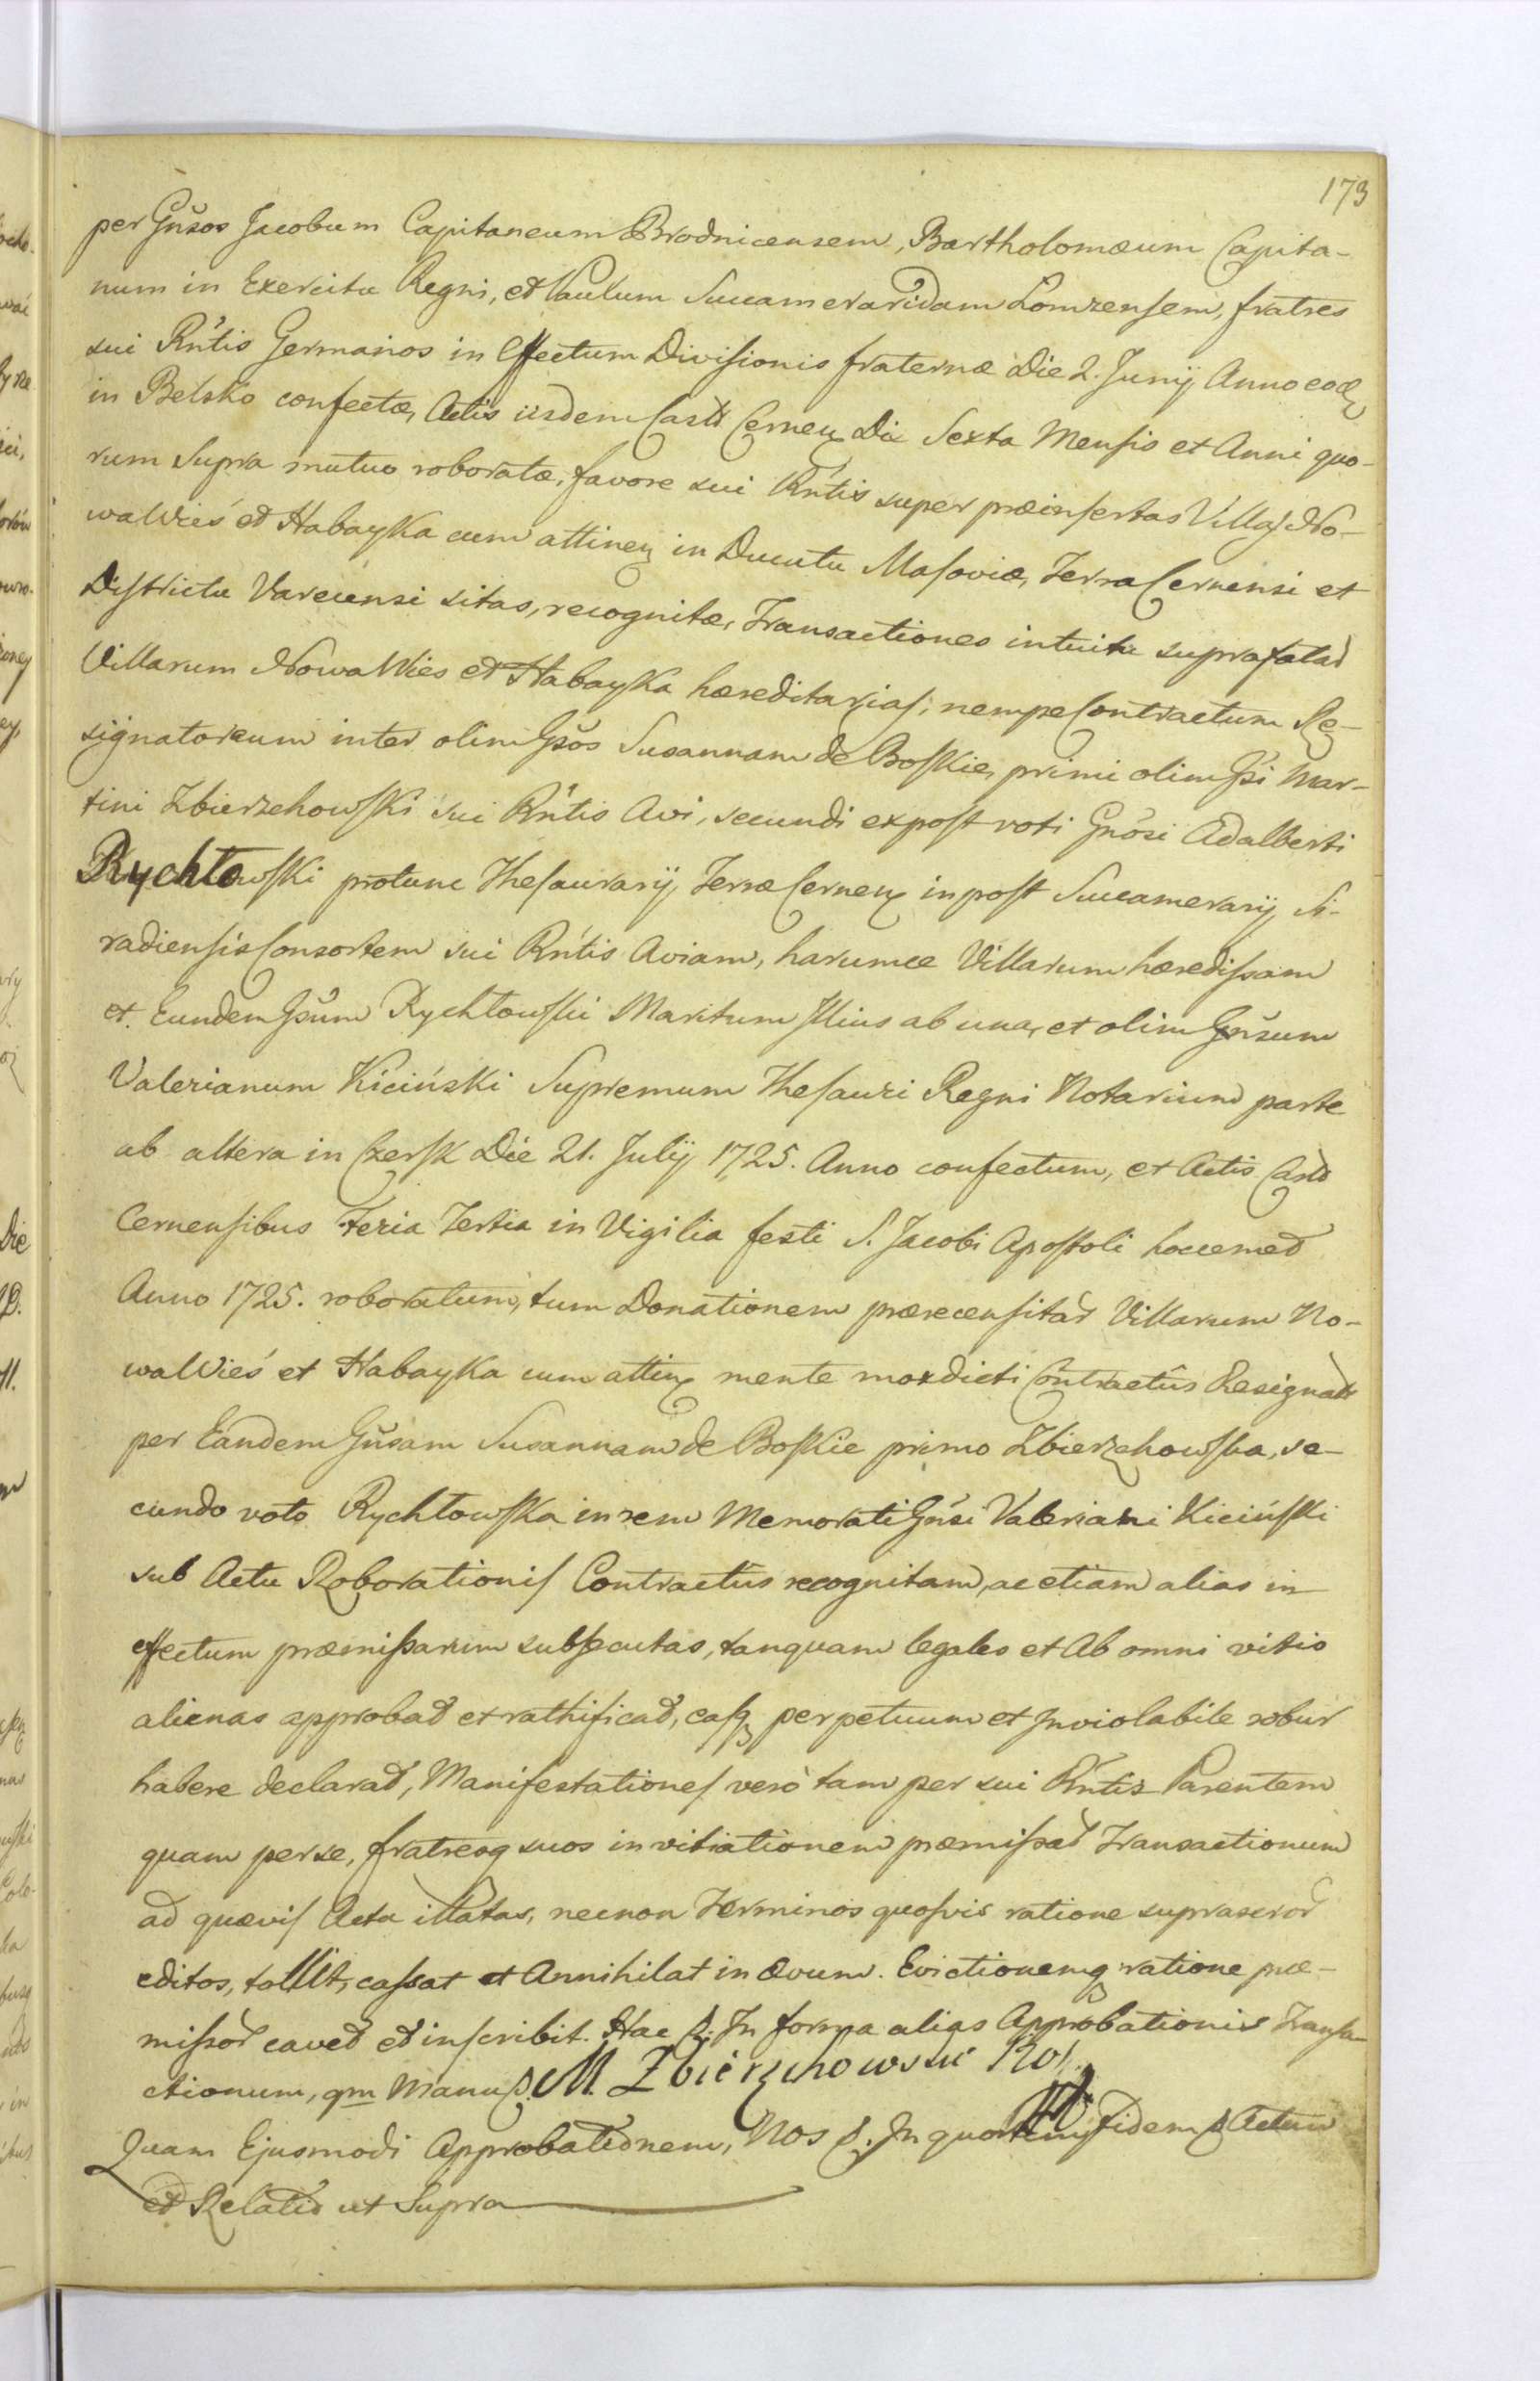 173
per Gnṡos Jacobum Capitaneum Brodnicensem, Bartholomæum Capita-
num in Exercitu Regni, et Paulum Succameraridam Łomzensem, fratres
sui Rn̄tis Germanos in Effectum Divisionis fraternæ Die 2. Junij Anno eod
in Belsko confectæ, Actis iisdem Castr Cernen Die Sexta Mensis et Anni quo-
rum Supra mutuo roboratæ, favore sui Rn̄tis super præinsertas Villas No-
waWieś et Habayka cum attinen in Ducatu Masoviæ, Terra Cernensi et
Districtu Varecensi sitas, recognitæ, Transactiones intuitu suprafatar
Villarum NowaWies et Habayka hæreditarias; nempe Contractum Re-
signatoreum inter olim Gsōs Susannam de Boskie, primi olim Gsi Mar-
tini Zbierzchowski sui Rn̄tis Avi, secundi expost voti Gnōsi Adalberti
Rychłowski protunc Thesaurarij Terræ Cernen inpost Succamerarij Si-
radiensis Consortem sui Rn̄tis Aviam, harumce Villarum hæredissam
et Eundem Gsum Rychłowski Maritum Illius ab una, et olim Gnsum
Valerianum Kiciński Supremum Thesauri Regni Notarium parte
ab altera in Czersk Die 21. Julij 1725. Anno confectum, et Actis Castr
Cernensibus Feria Tertia in Vigilia festi S. Jacobi Apostoli hoccemet
Anno 1725. roboratum, tum Donationem præcensitar Villarum No-
waWieś et Habayka cum attin mente moxdicti Contractûs Resignatr
per Eandem Gnsam Susannam de Boskie primo Zbierzchowska, se-
cundo voto Rychłowska in rem Memorati Gnsi Valeriani Kiciński
sub Actu Roborationis Contractûs recognitam, ac etiam alias in
effectum præmissarum subsecutas, tanquam legales et Ab omni vitio
alienas approbat et rathificat, easq perpetuum et Inviolabile robur
habere declarat, Manifestationes verò tam per sui Rn̄tis Parentem
quam per se, fratresq suos in vitiationem præmissar Transactionum
ad quævis Acta illatas, necnon Terminos quosvis ratione suprascror
editos, tollit, cassat et Annihilat in ævum. Evictionemq ratione præ-
missor cavet et inscribit. Hac p. In forma alias Approbationis Transa-
ctionum, qm Manu p. M Zbierzchowski
Quam Ejusmodi Approbationem, Nos p. In quorum fidem p Actum
et Relatio ut Supra